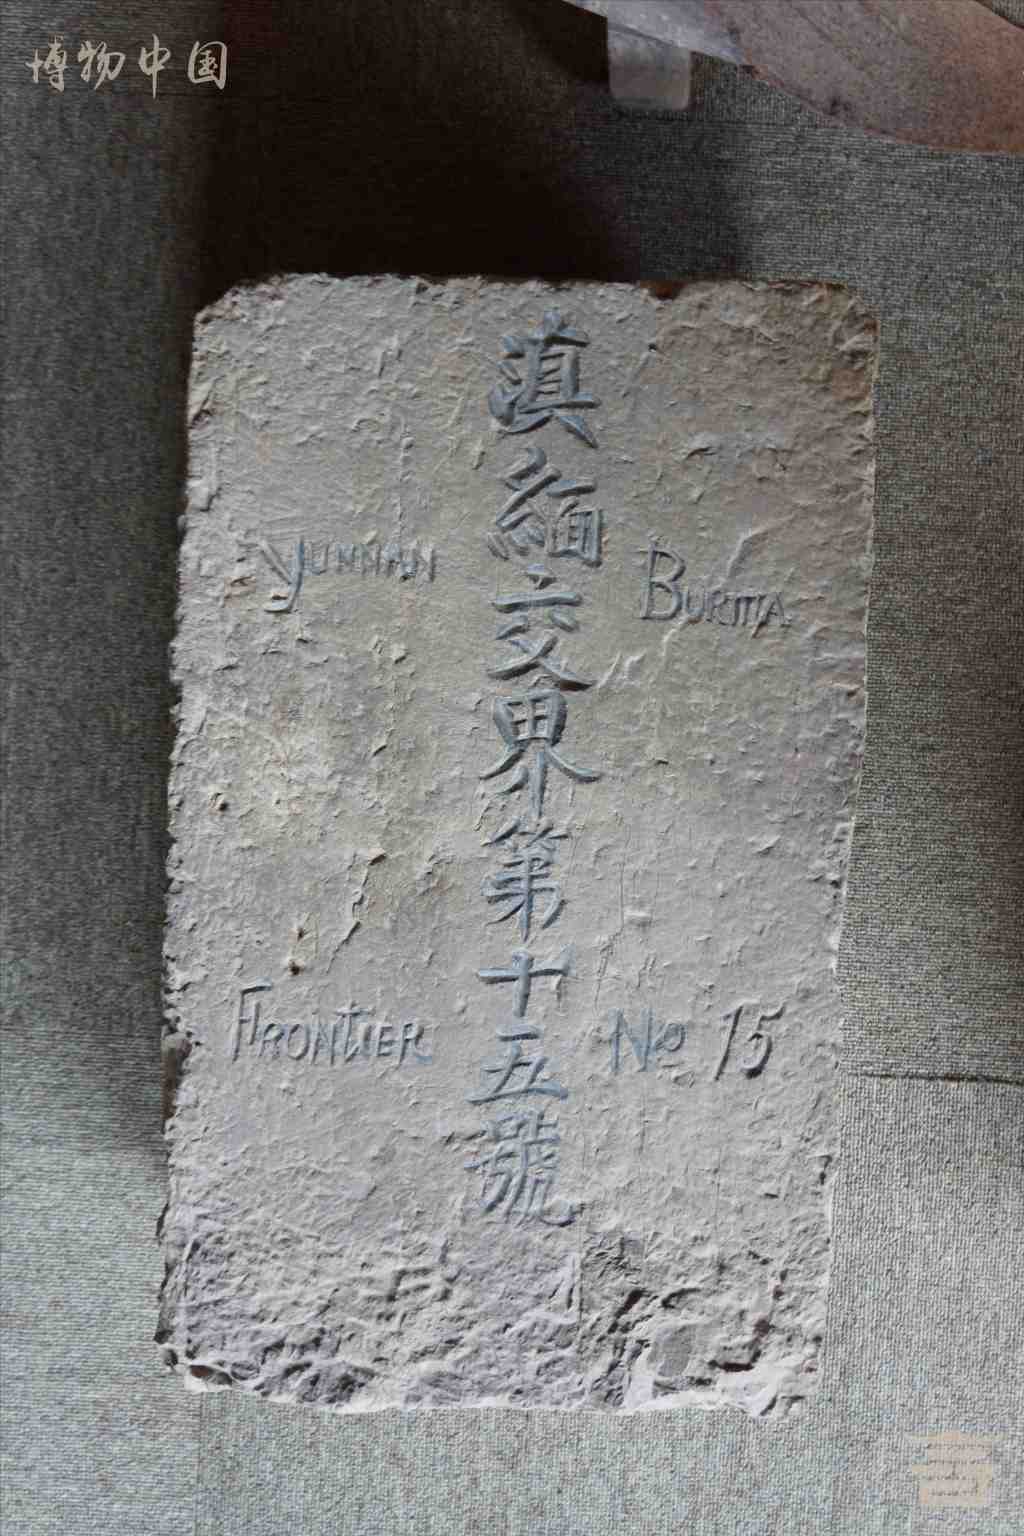 博物中国
滇緬交界第十五號
YUNNAN
BURMA
FRONTIER
No 15